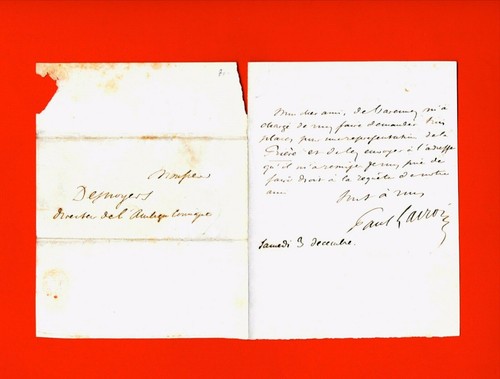 Monsieur
Desnoyers
directeur de l'Ambigu Comique
Mon cher ami, de Garennes m'a
chargé de vous faire demander deux
places pour une représentation de la
et de les envoyer à l'adresse
qu'il m'a remise je vous prie de
faire droit à la requête de notre
ami
tout à vous
Paul Lacroix
Samedi 3 decembre.